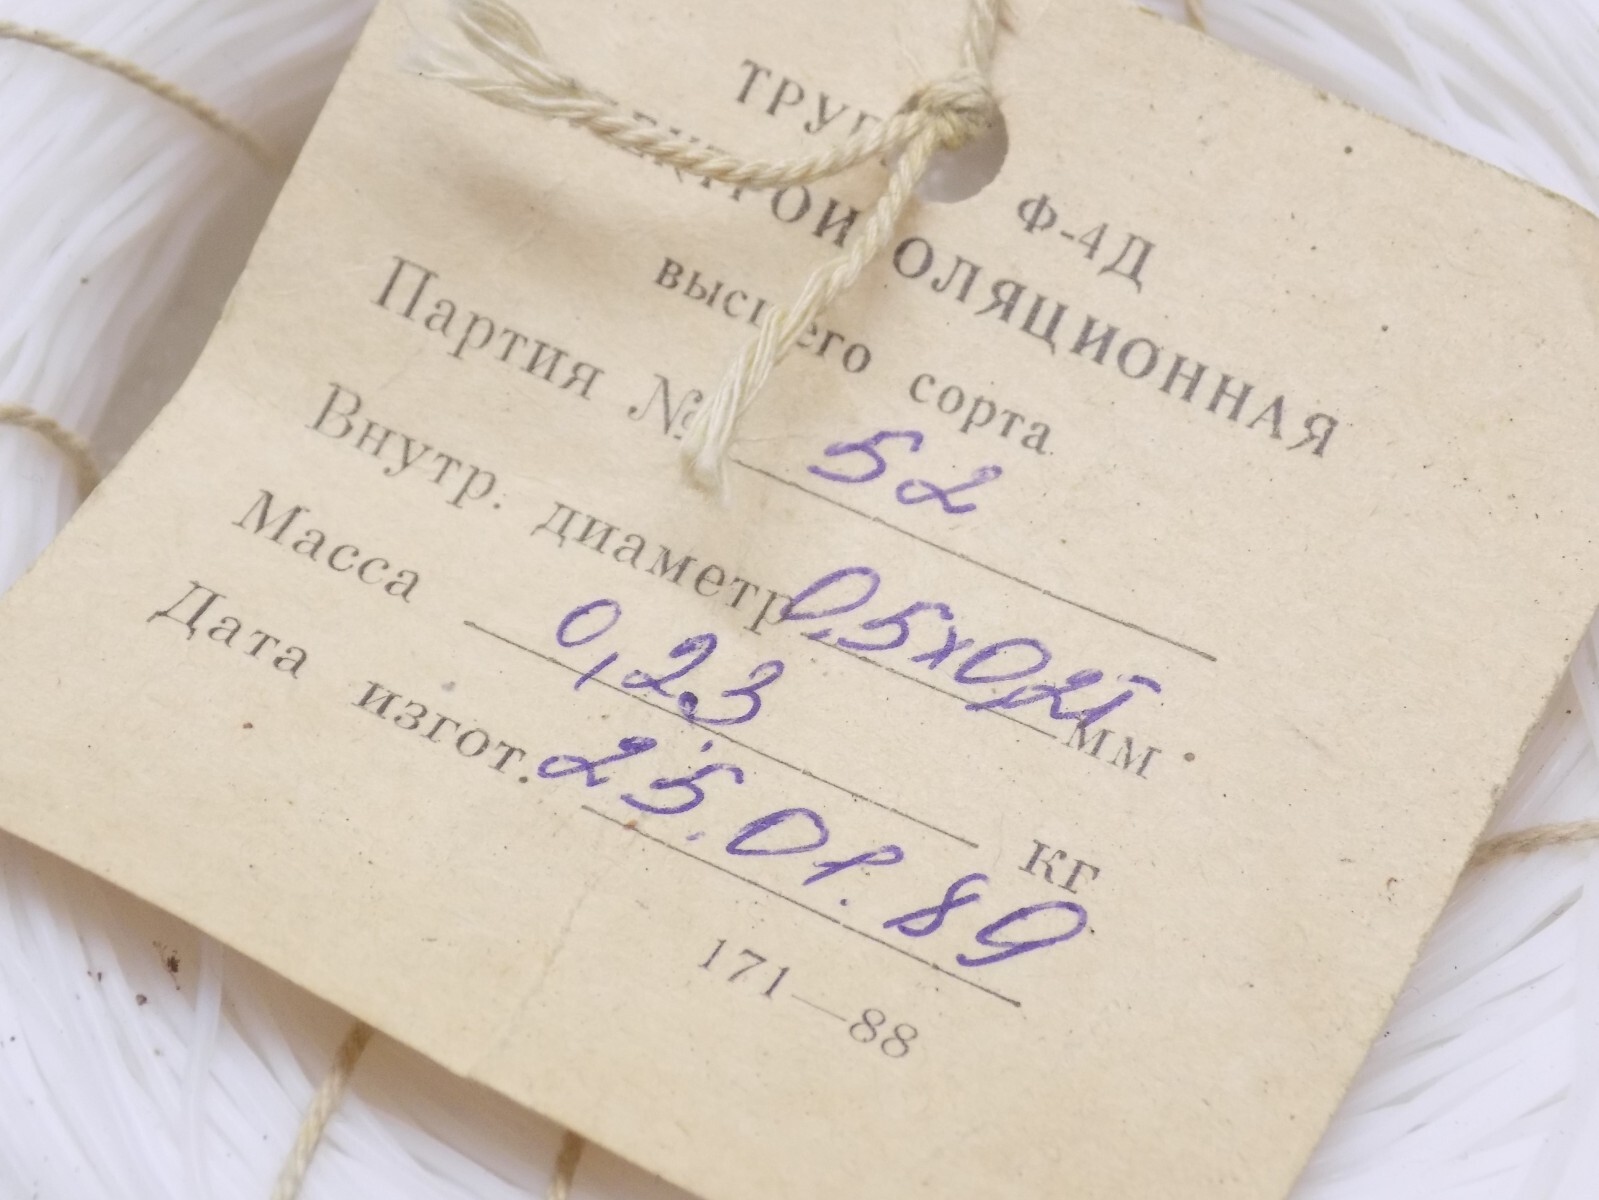 ТРУБ Ф-4Д
ЭЛЕКТРОИЗОЛЯЦИОННАЯ
высшего сорта
Партия № 52
Внутр. диаметр 0,5х0,25 мм
Масса 0,23 кг
Дата изгот. 25.01.89
171—88